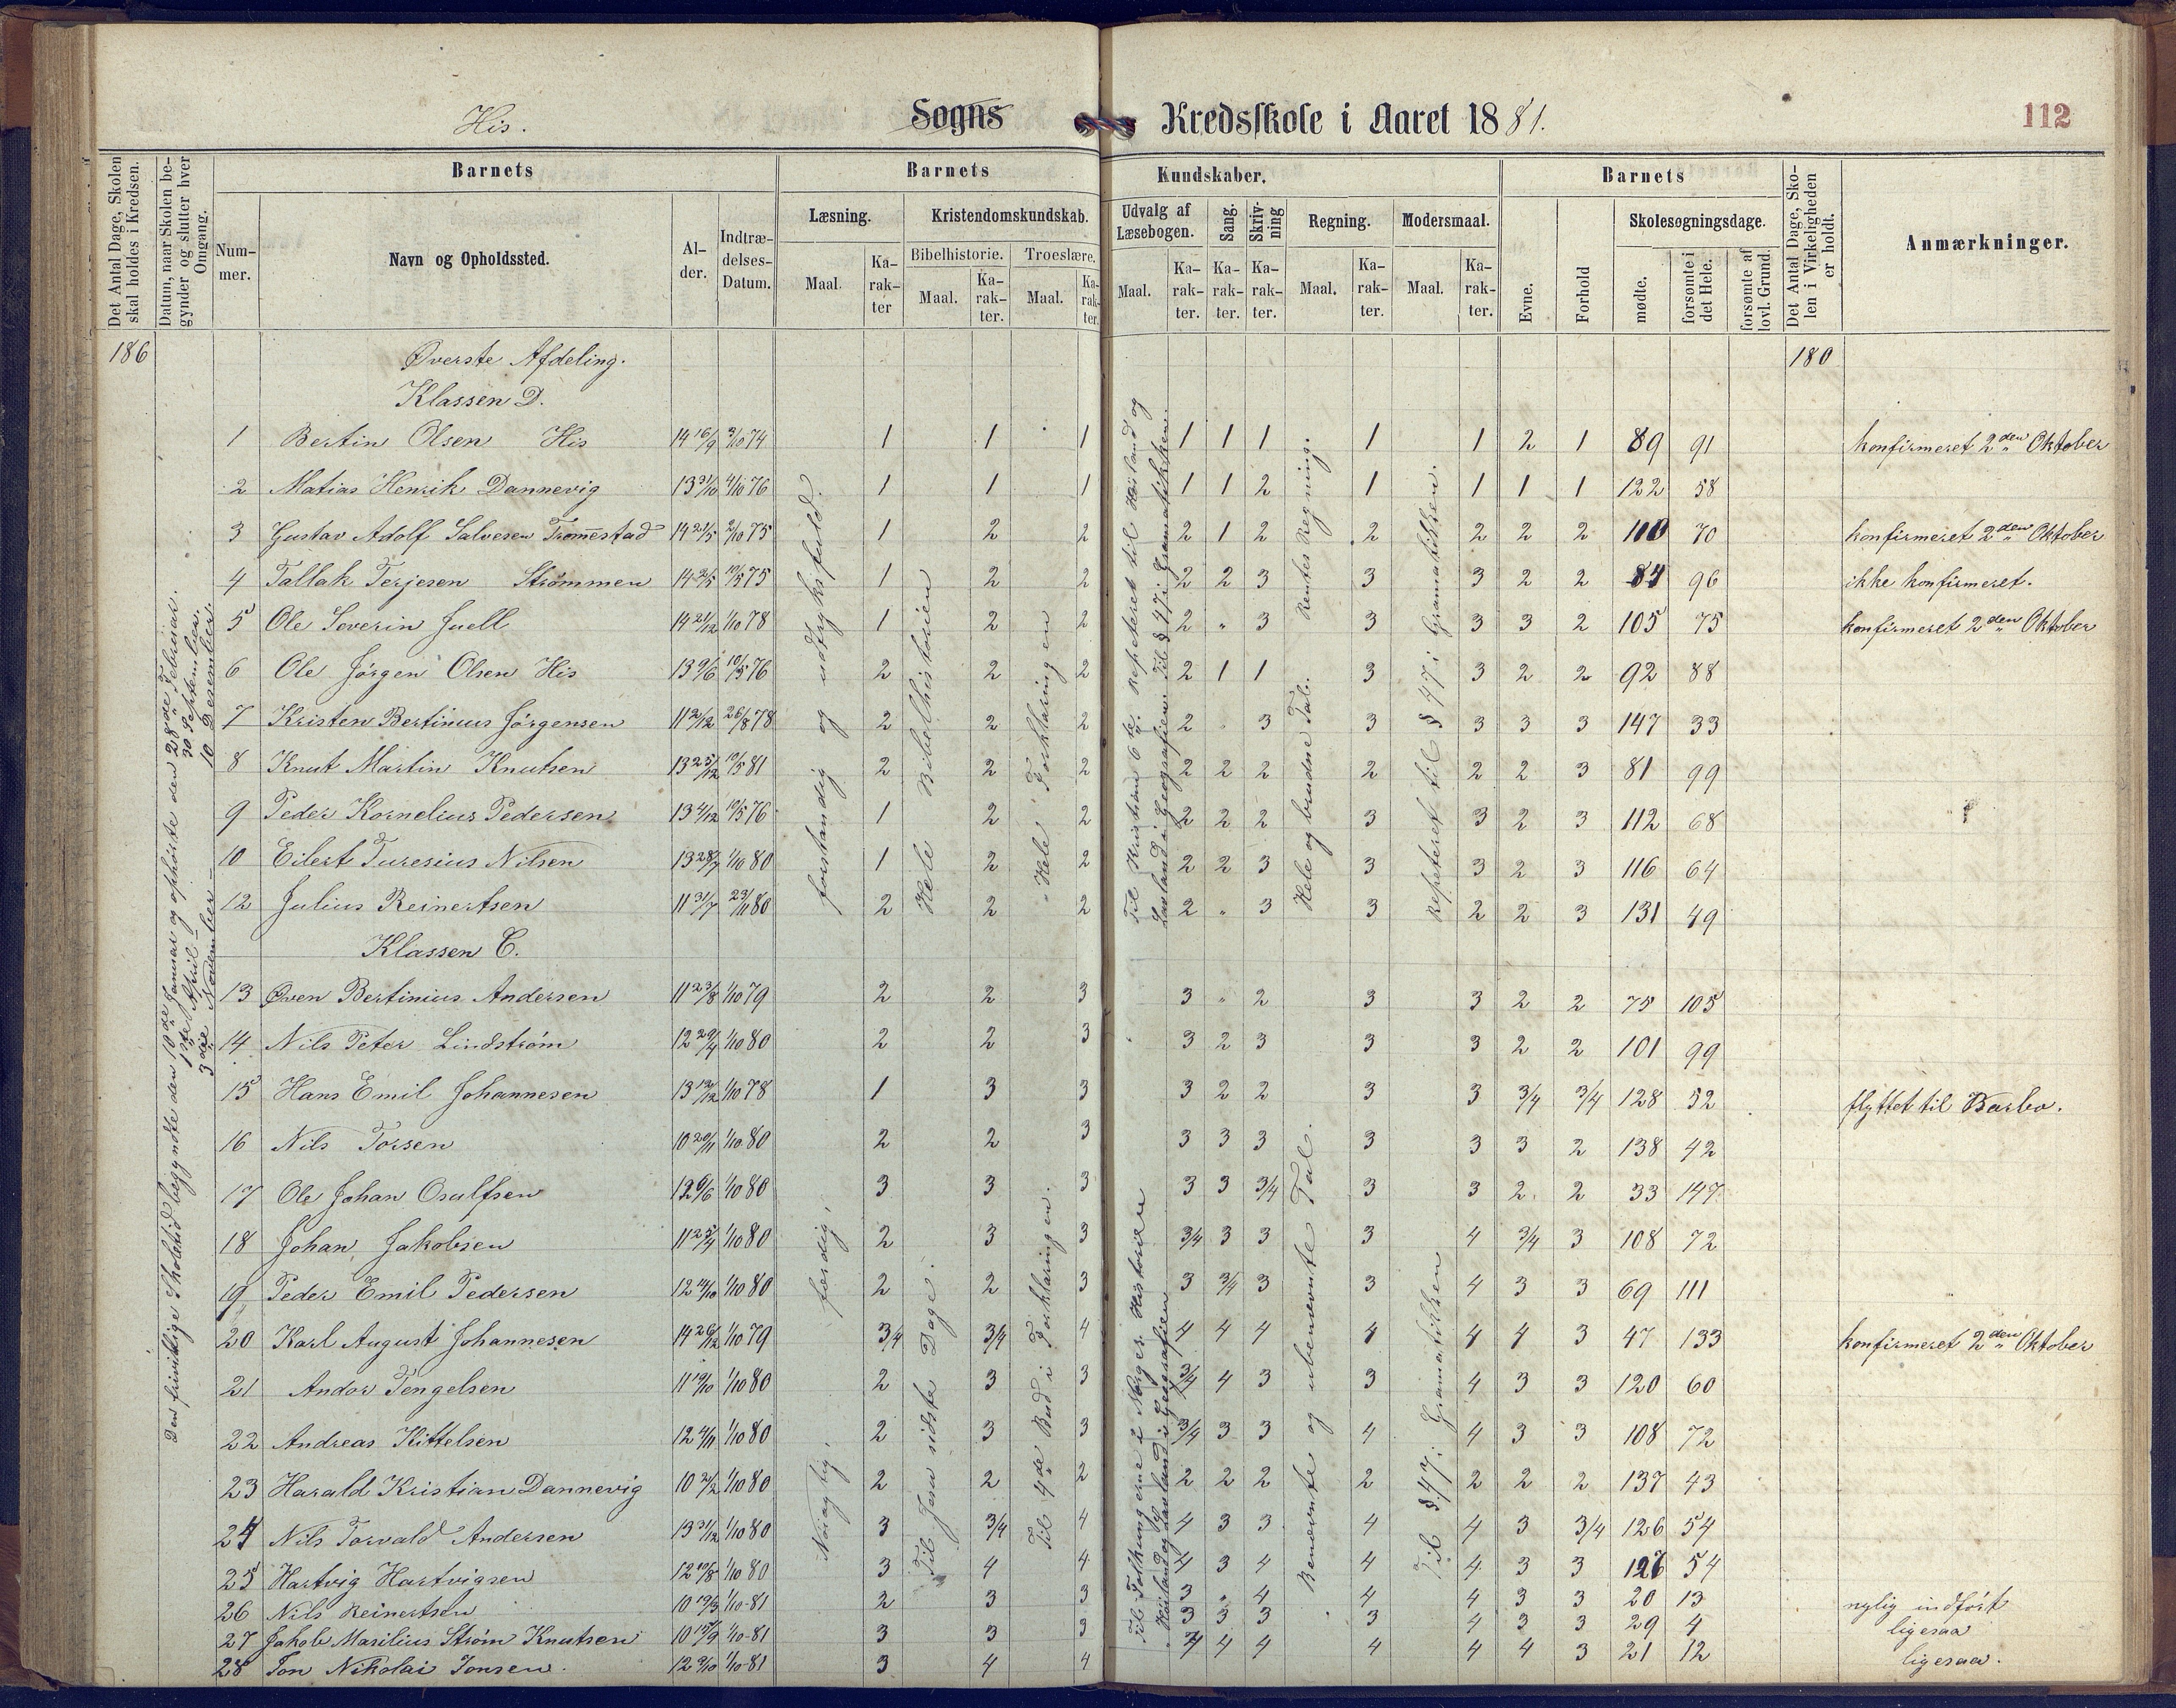 His. Sogns Kredsskole i Aaret 1881. 112
Det Antal Dage, Skolen skal holdes i Kredsen.
Datum, naar Skolen begynder og slutter hver Omgang.
Barnets
Barnets
Kundskaber.
Barnets
Det Antal Dage, Skolen i Virkeligheden er holdt.
Anmærkninger.
Nummer.
Navn og Opholdssted.
Alder.
Indtrædelses-Datum.
Læsning.
Kristendomskundskab.
Udvalg af Læsebogen.
Sang.
Skrivning
Regning.
Modersmaal.
Evne.
Forhold
Skolesøgningsdage.
Bibelhistorie.
Troeslære.
Maal.
Karakter
Maal.
Karakter.
Maal.
Karakter.
Maal.
Karakter.
Karakter.
Karakter.
Maal.
Karakter.
Maal.
Karakter.
mødte.
forsømte i det Hele.
forsømte af lovl. Grund.
186 Øverste Afdeling. 180
Klassen D.
1 Bertin Olsen His 14 16/9 3/10 74 1 1 1 1 1 1 1 1 2 1 89 91 konfirmeret 2den Oktober
2 Matias Henrik Dannevig 13 31/10 4/10 76 1 1 1 1 1 2 1 1 1 1 122 58
3 Gustav Adolf Salvesen Tromestad 14 21/5 2/10 75 1 2 2 2 1 2 2 2 2 2 110 70 konfirmeret 2den Oktober
4 Tallak Terjesen Strømmen 14 2/5 10/5 75 1 2 2 2 2 3 3 3 2 2 84 96 ikke konfirmeret.
5 Ole Severin Juell 14 21/12 1/10 78 1 2 2 2 " 3 3 3 3 2 105 75 konfirmeret 2den Oktober
6 Ole Jørgen Olsen His 13 9/6 10/5 76 2 2 2 2 1 1 3 3 2 2 92 88
7 Kristen Bertinius Jørgensen 11 2/12 26/8 78 2 2 2 2 " 3 3 3 3 3 147 33
8 Knut Martin Knutsen 13 25/12 10/5 81 2 2 2 2 2 2 2 2 2 3 81 99
9 Peder Kornelius Pedersen 13 4/12 10/5 76 1 2 2 2 2 2 3 3 2 3 112 68
10 Eilert Turesius Nilsen 13 28/7 1/10 80 1 2 2 2 2 3 3 3 2 3 116 64
12 Julius Reinertsen 11 31/7 23/11 80 2 2 2 2 " 3 3 2 2 3 131 49
Klassen C.
13 Øven Bertinius Andersen 11 23/8 1/10 79 2 2 3 3 " 2 3 3 2 2 75 105
14 Nils Peter Lindstrøm 12 29/4 1/10 80 2 2 3 3 2 3 3 3 2 2 101 99
15 Hans Emil Johannesen 13 12/12 1/10 78 1 3 3 3 2 2 3 3 3/4 3/4 128 52 flyttet til Barbo.
16 Nils Torsen 10 20/11 1/10 80 2 2 3 3 3 3 3 3 3 2 138 42
17 Ole Johan Osulfsen 12 6/6 1/10 80 3 3 3 3 3 3/4 3 3 2 2 33 147
18 Johan Jakobsen 11 25/4 1/10 80 2 3 3 3/4 3 3 3 4 3/4 3 108 72
19 Peder Emil Pedersen 12 14/10 1/10 80 2 2 3 3 3/4 3 3 4 3 3 69 111
20 Karl August Johannesen 14 26/12 1/10 79 3/4 3/4 4 4 4 4 4 4 4 3 47 133 konfirmeret 2den Oktober
21 Andor Tengelsen 11 19/10 1/10 80 2 3 3 3/4 4 3 3 4 3 3 120 60
22 Andreas Kittelsen 12 4/11 1/10 80 2 3 3 3/4 3 3 4 4 3 3 108 72
23 Harald Kristian Dannevig 10 2/2 1/10 80 2 2 2 2 2 2 2 2 2 2 137 43
24 Nils Torvald Andersen 13 31/12 1/10 80 3 3/4 4 4 3 3 4 4 3 3/4 126 54
25 Hartvig Hartvigsen 12 10/8 1/10 80 3 4 4 4 3 4 4 4 3 3 126 54
26 Nils Reinertsen 10 19/3 1/10-81 2 3 3 3 " 4 4 4 3 3 20 13 nylig indført
27 Jakob Marilius Strøm Knutsen 10 15/9 1/10-81 3 3 3 3 3 3 3 4 3 3 29 4 ligesaa
28 Jon Nikolai Jonsen. 12 9/10 1/10-81 3 4 4 4 4 4 4 4 4 3 21 12 ligesaa.
Den frivillige Skoletid begyndte den 10de Januar og ophørte den 28de Februar.
1ste April – 30 September.
3die November – 10 Desember.
forstandig og udtryksfuld.
Hele Bibelhistorien
Hele Forklaringen
Til Kristian 6te. Repeteret til Høiland og
Lavland i Geografien. Til § 47 i Gramatikken.
Hele og brudne Tal. Rentes Regning.
Repeteret til § 47 i Gramatikken.
Nøiagtig, færdig,
Til Jesu sidste Dage.
Til 4de Bud i Forklaringen.
Til Folkungerne i Norges Historien
Høiland og Lavland i Geografien
Benævnte og ubenævnte Tal.
Til § 47 i Gramatikken